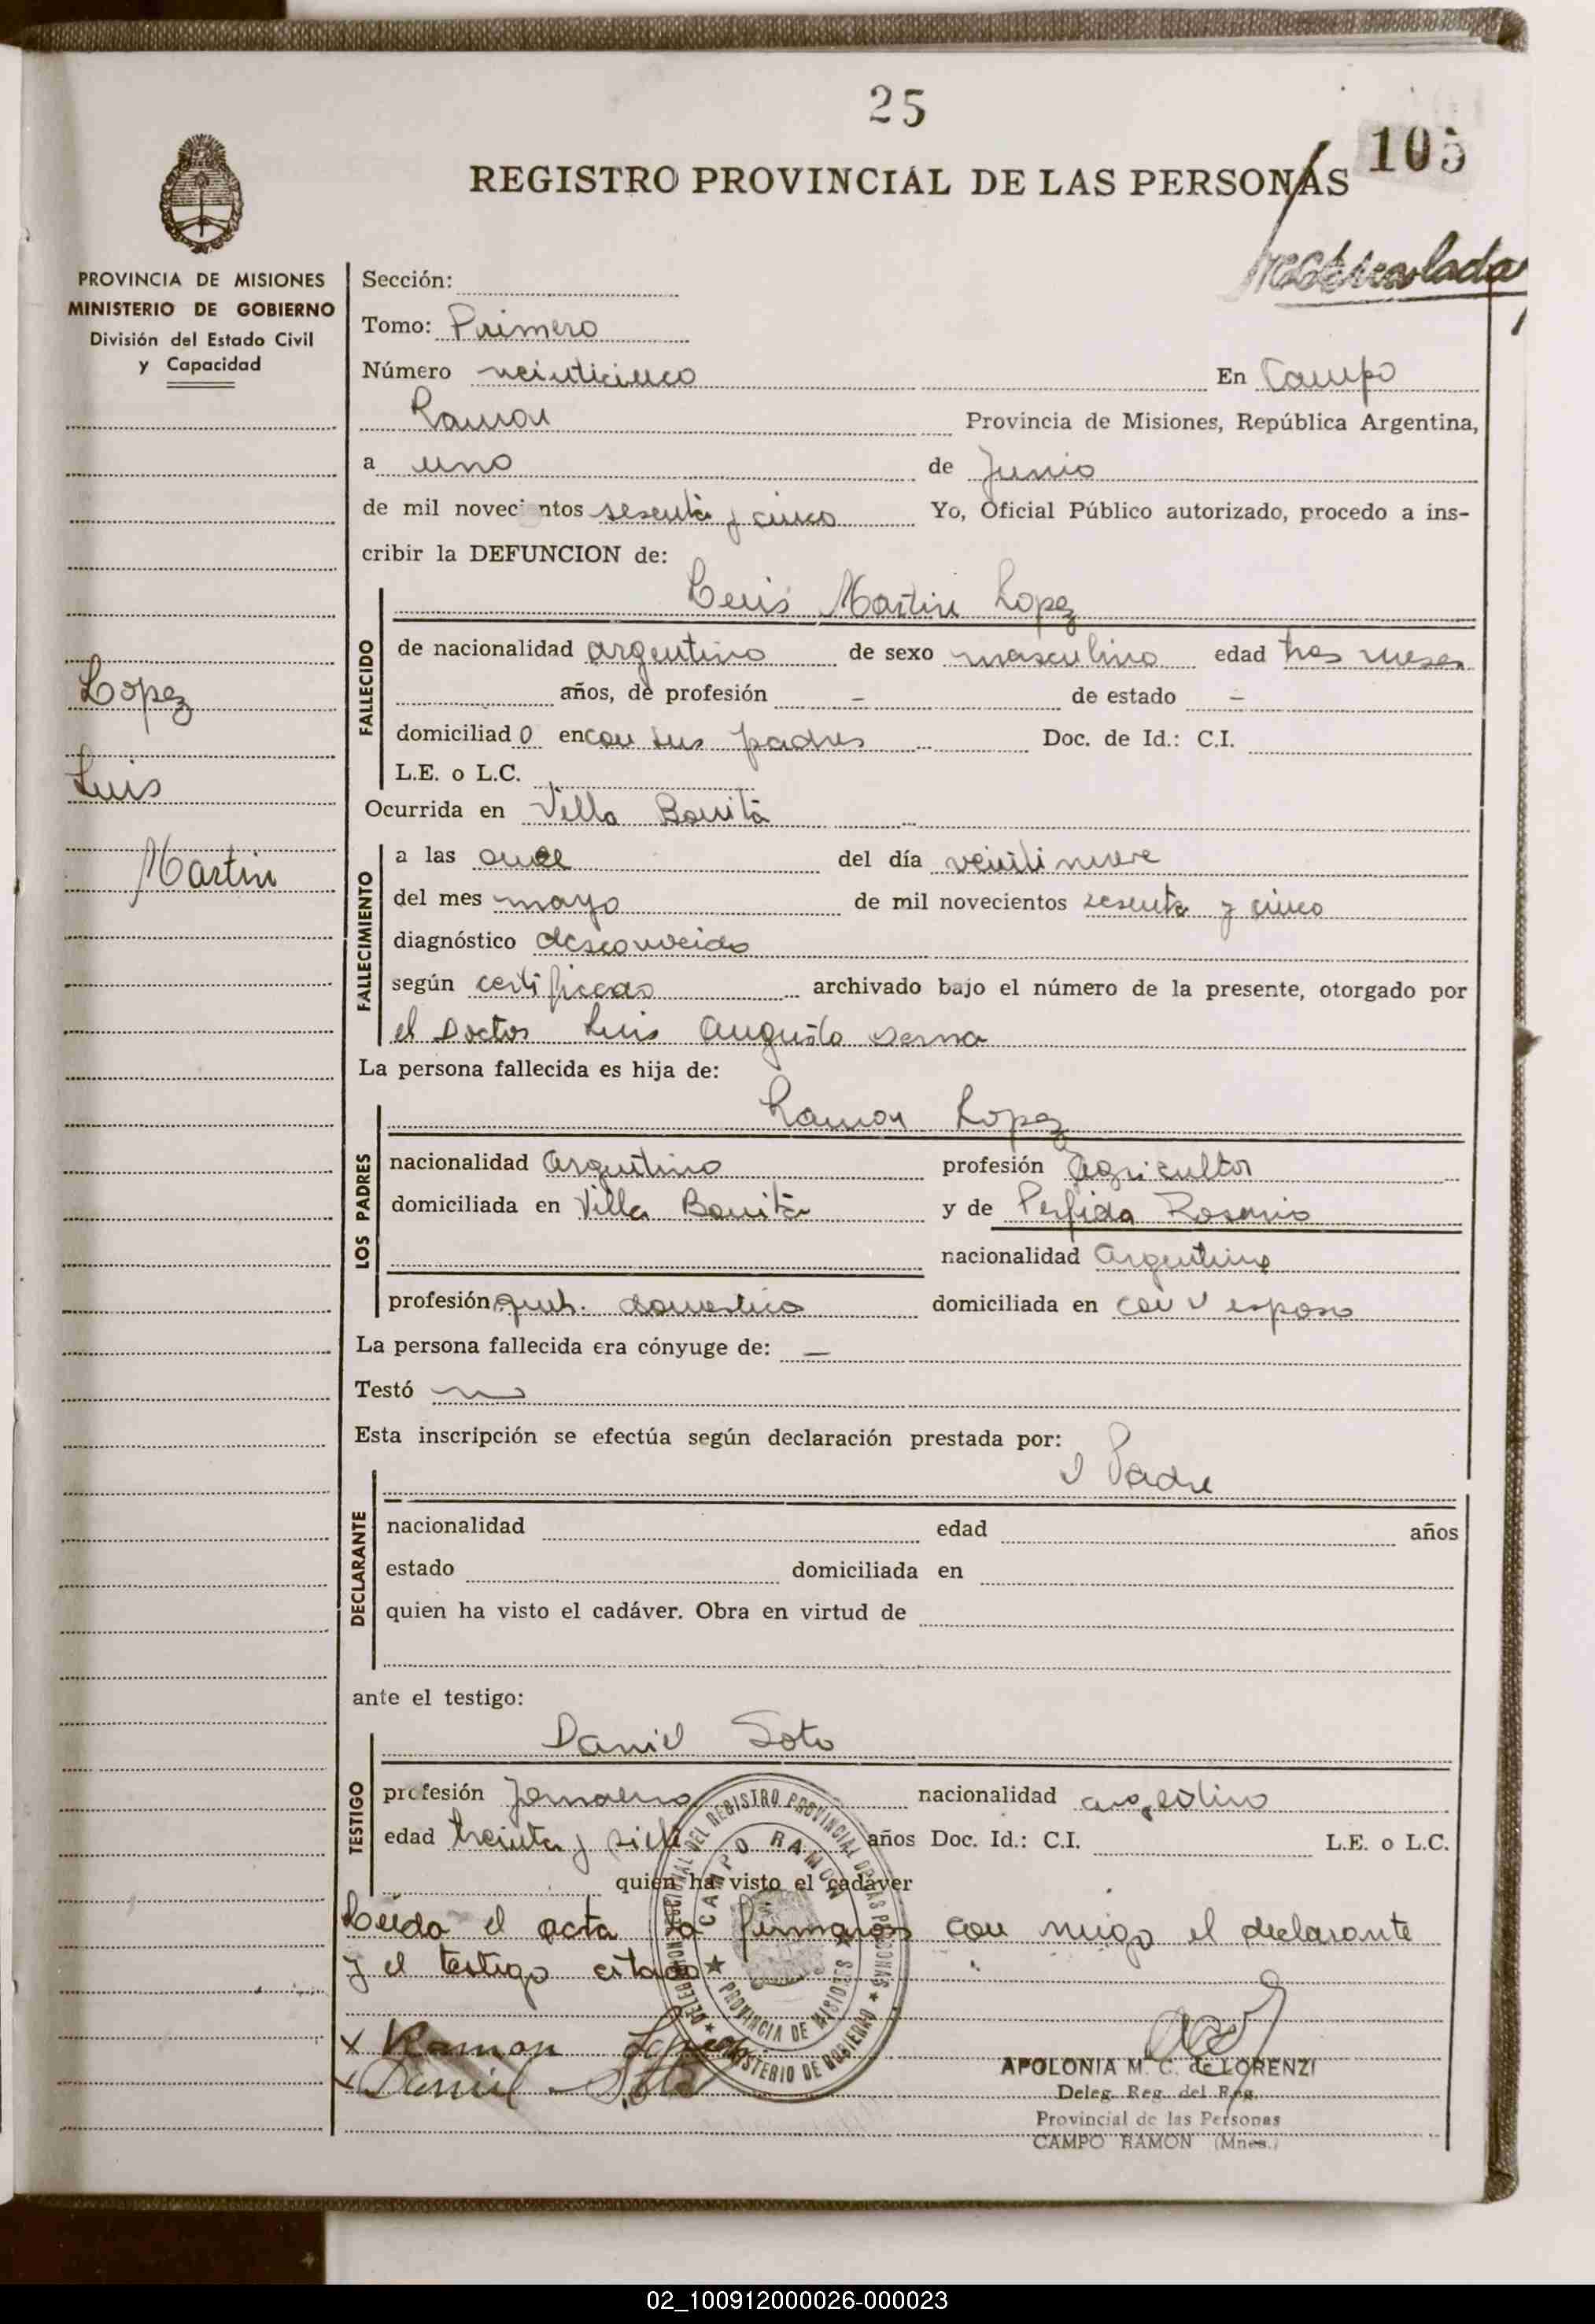 25
105
REGISTRO PROVINCIAL DE LAS PERSONAS
PROVINCIA DE MISIONES
MINISTERIO DE GOBIERNO
División del Estado Civil
y Capacidad
Lopez
Luis
Martin
Sección:
Tomo: Primero
Número veinticinco En Campo
Ramon Provincia de Misiones, República Argentina,
a uno de Junio
de mil novecientos sesenta y cinco Yo, Oficial Público autorizado, procedo a ins-
cribir la DEFUNCION de:
Luis Martin Lopez
FALLECIDO
de nacionalidad argentino de sexo masculino edad tres meses
años, de profesión - de estado -
domiciliado en con sus padres Doc. de Id.: C.I.
L.E. o L.C.
Ocurrida en Villa Bonita
FALLECIMIENTO
a las once del día veintinueve
del mes mayo de mil novecientos sesenta y cinco
diagnóstico desconocido
según certificado archivado bajo el número de la presente, otorgado por
el Doctor Luis Augusto Serna
La persona fallecida es hija de:
Ramon Lopez
LOS PADRES
nacionalidad Argentino profesión agricultor
domiciliada en Villa Bonita y de Perfida Rosario
nacionalidad Argentina
profesión domestico domiciliada en esposo
La persona fallecida era cónyuge de: —
Testó no
Esta inscripción se efectúa según declaración prestada por:
el Padre
DECLARANTE
nacionalidad edad años
estado domiciliada en
quien ha visto el cadáver. Obra en virtud de
ante el testigo:
Daniel Soto
TESTIGO
profesión Jornalero nacionalidad argentino
edad treinta y siete años Doc. Id.: C.I. L.E. o L.C.
quien ha visto el cadáver
Leida el acta la firmaron con migo el declarante
y el testigo citado
DELEGACION SECCIONAL DEL REGISTRO PROVINCIAL DE LAS PERSONAS ★ MINISTERIO DE GOBIERNO ★
CAMPO RAMON ★ PROVINCIA DE MISIONES ★
x Ramon Lopez
x Daniel Soto
APOLONIA M. C. de LORENZI
Deleg. Reg. del Reg.
Provincial de las Personas
CAMPO RAMON (Mnes.)
02_100912000026-000023